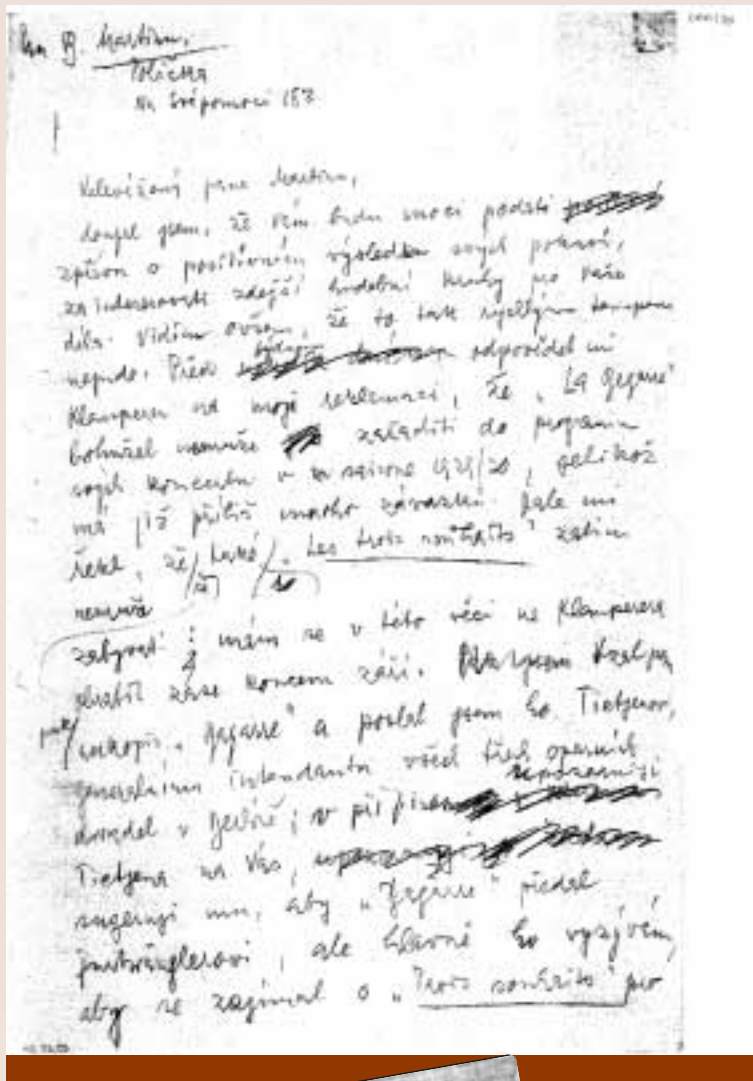 Pan B. Martinu,
Polička
Na Svépomoci 182
Velevážený pane Martinu,
doufal jsem, že Vám budu moci podati
zprávu o positivním výsledku svých pokusů,
zainteresovati zdejší hudební kruhy pro Vaše
díla. Vidím ovšem, že to tak rychlým tempem
nepůjde. Před týdnem odpověděl mi
Klemperer na moji reklamaci, že „La Bagarre"
bohužel nemůže zařaditi do programu
svých koncertů v saisoně 1929/30, jelikož
má již příliš mnoho závazků. Dále mi
řekl, že také „Les trois souhaits" zatím
nemůže
zabývati; mám se v této věci na Klemperera
obrátit zase koncem září. jsem
rukopis „Bagarre" a poslal jsem ho Tietjenovi,
generálnímu intendantu všech třech operních
divadel v Berlíně; v přípise upozorňuji
Tietjena na Vás,
sugeruji mu, aby „Bagarre" předal
Furtwänglerovi, ale hlavně ho vyzývám,
aby se zajímal o „Trois souhaits" pro